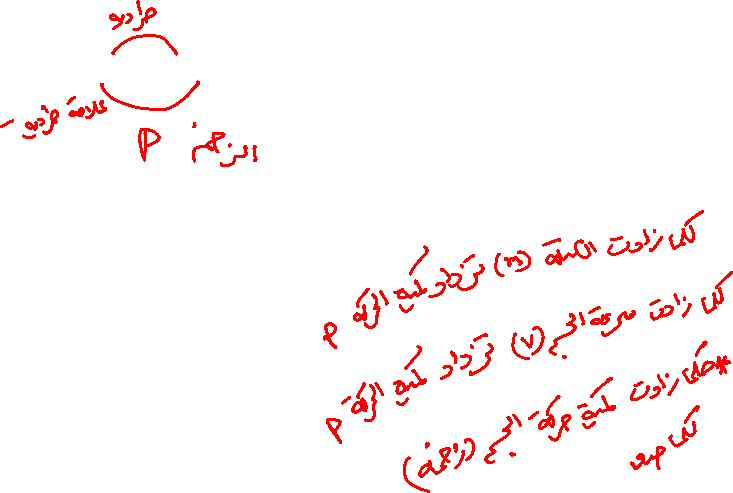 طردية
علاقة طردية
الزخم P
كلما زادت الكتلة (m) تزداد كمية الحركة P
كلما زادت سرعة الجسم (v) تزداد كمية الحركة P
*كلما زادت كمية حركة الجسم (زخمه)
كلما